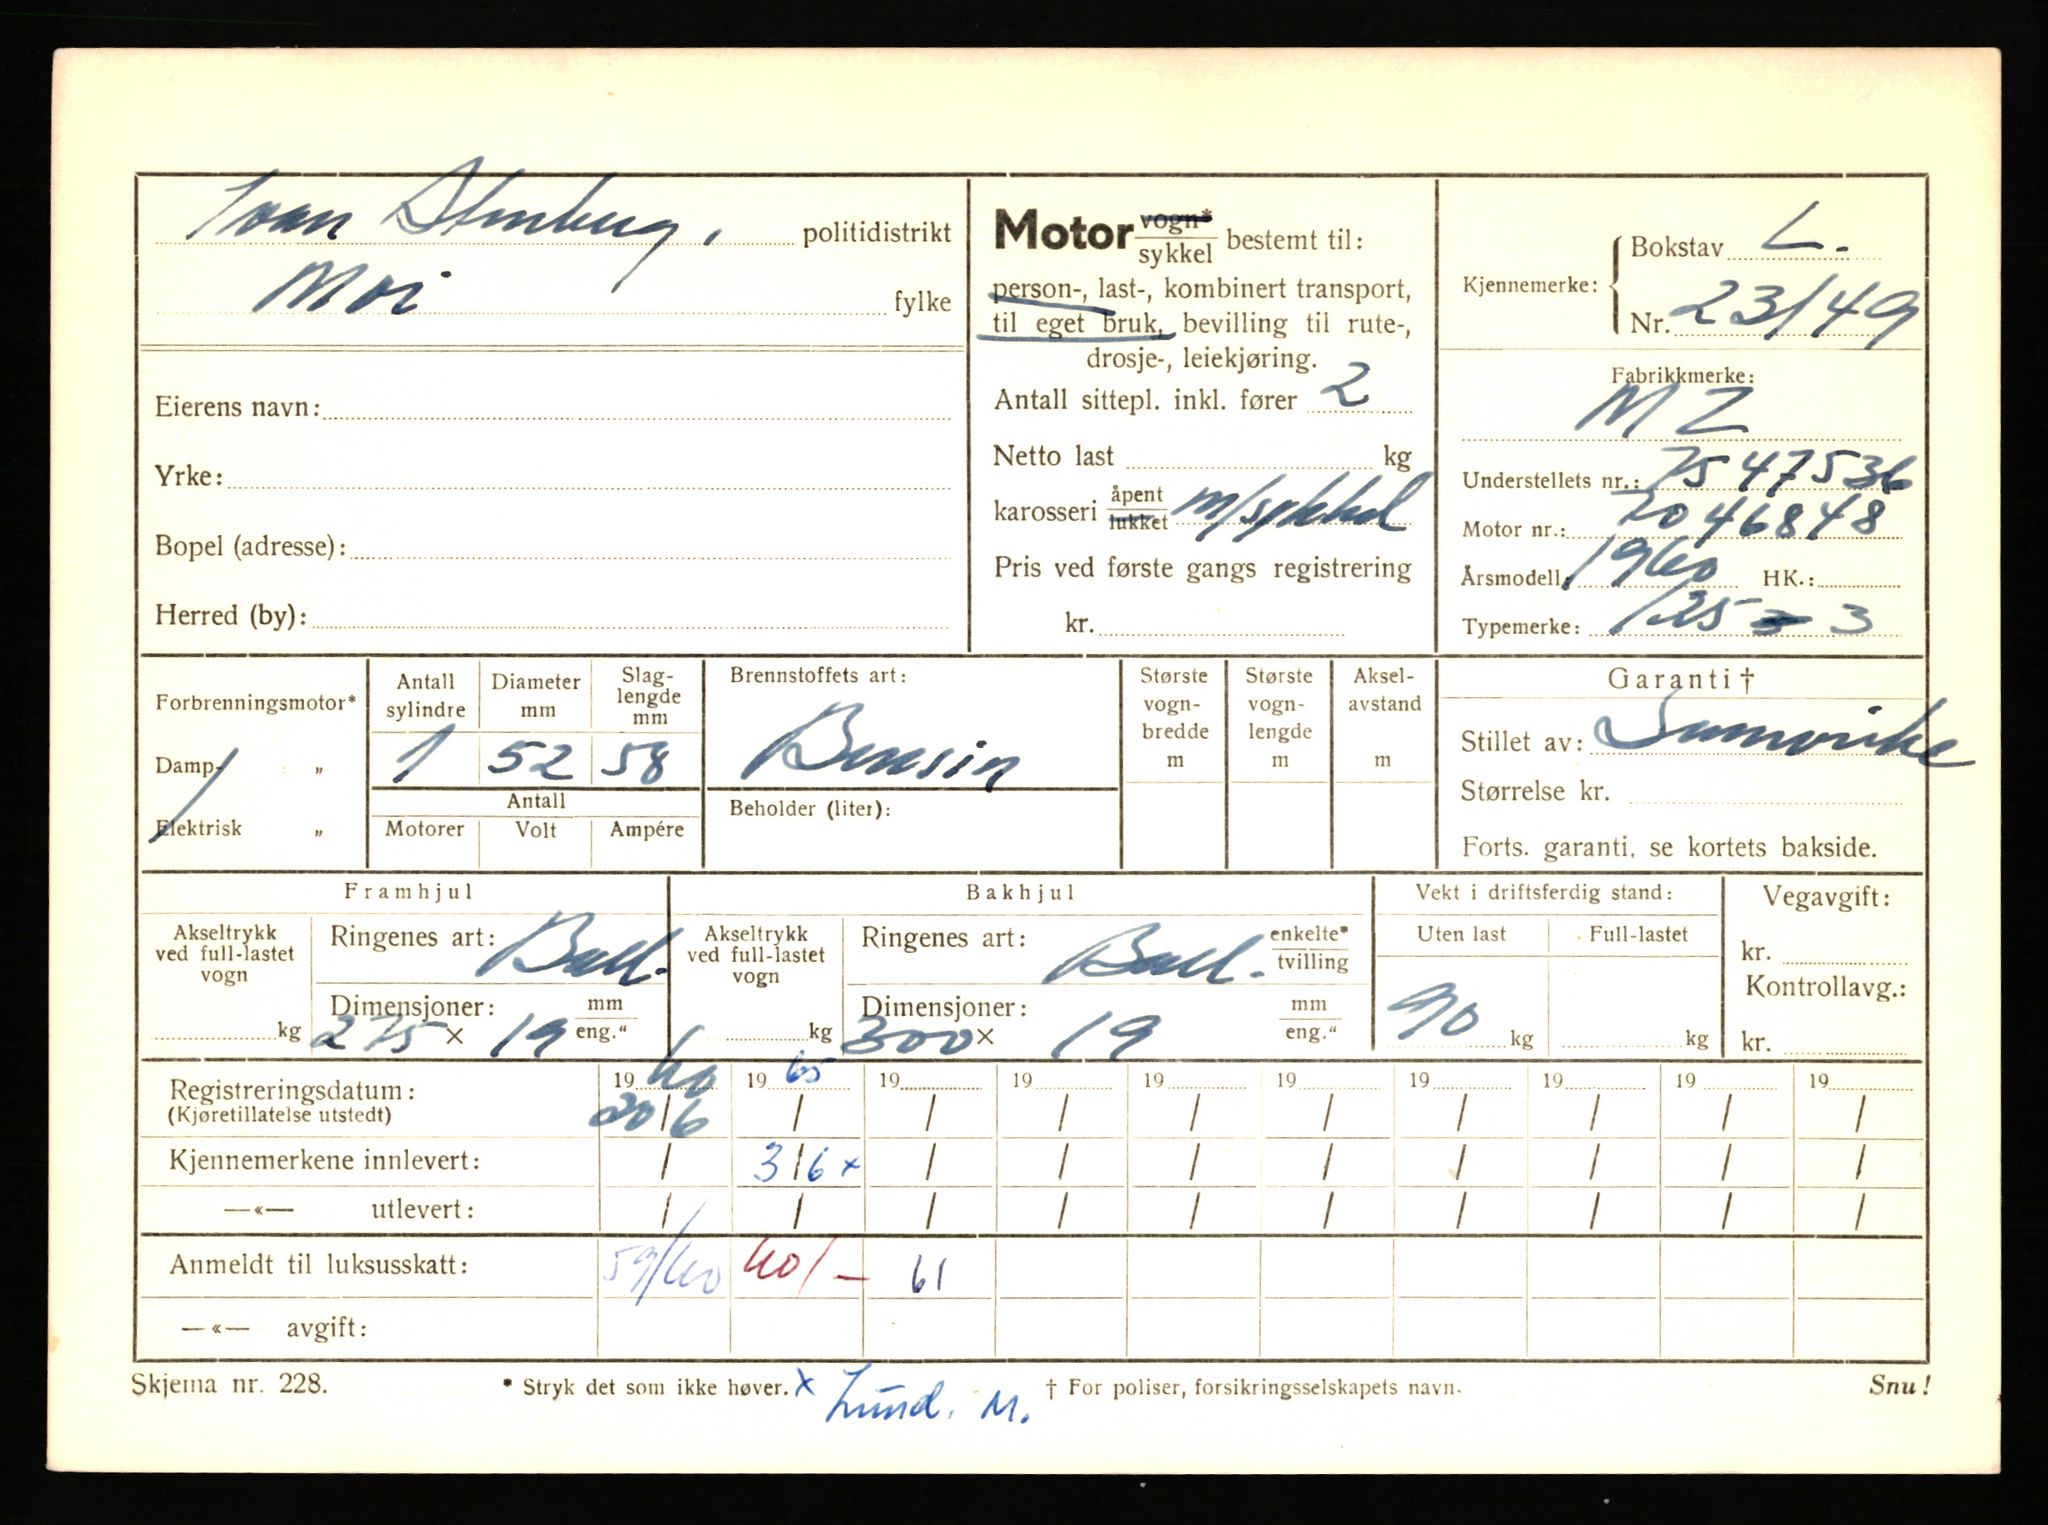 Ivan Stenberg, politidistrikt
Moi fylke
Eierens navn:
Yrke:
Bopel (adresse):
Herred (by):
Motor vogn* / sykkel bestemt til:
person-, last-, kombinert transport,
til eget bruk, bevilling til rute-,
drosje-, leiekjøring.
Antall sittepl. inkl. fører 2
Netto last kg
karosseri åpent / lukket m/sykkel
Pris ved første gangs registrering
kr.
Kjennemerke: Bokstav L.
Nr. 23149
Fabrikkmerke:
MZ
Understellets nr.: 7547536
Motor nr.: 7046848
Årsmodell: 1960 HK.:
Typemerke: 125 3
Forbrenningsmotor*
Damp- „
Elektrisk „
Antall sylindre
Diameter mm
Slag-lengde mm
1 52 58
Antall
Motorer Volt Ampére
Brennstoffets art:
Bensin
Beholder (liter):
Største vogn-bredde m
Største vogn-lengde m
Aksel-avstand m
Garanti †
Stillet av: Samvirke
Størrelse kr.
Forts. garanti, se kortets bakside.
Framhjul
Akseltrykk ved full-lastet vogn
kg
Ringenes art: Ball.
Dimensjoner: mm
275 x 19 eng."
Bakhjul
Akseltrykk ved full-lastet vogn
kg
Ringenes art: Ball. enkelte* / tvilling
Dimensjoner: mm
300 x 19 eng."
Vekt i driftsferdig stand:
Uten last Full-lastet
90 kg kg
Vegavgift:
kr.
Kontrollavg.:
kr.
Registreringsdatum: 19 60 19 65 19 19 19 19 19 19 19 19
(Kjøretillatelse utstedt) 20/6 / / / / / / / / /
Kjennemerkene innlevert: / 3/6 x / / / / / / / /
—«— utlevert: / / / / / / / / / /
Anmeldt til luksusskatt: 59/60 60/- 61
—«— avgift:
Skjema nr. 228. * Stryk det som ikke høver. x Lund. M. † For poliser, forsikringsselskapets navn. Snu!